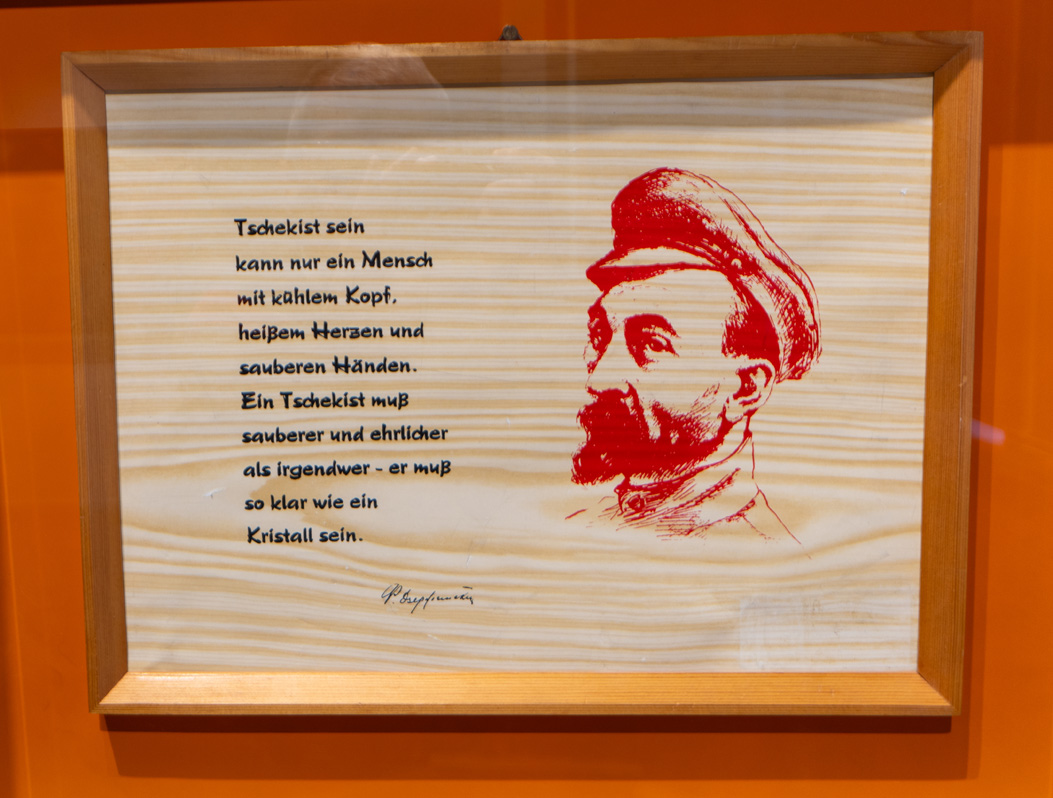 Tschekist sein
kann nur ein Mensch
mit kühlem Kopf,
heißem Herzen und
sauberen Händen.
Ein Tschekist muß
sauberer und ehrlicher
als irgendwer - er muß
so klar wie ein
Kristall sein.